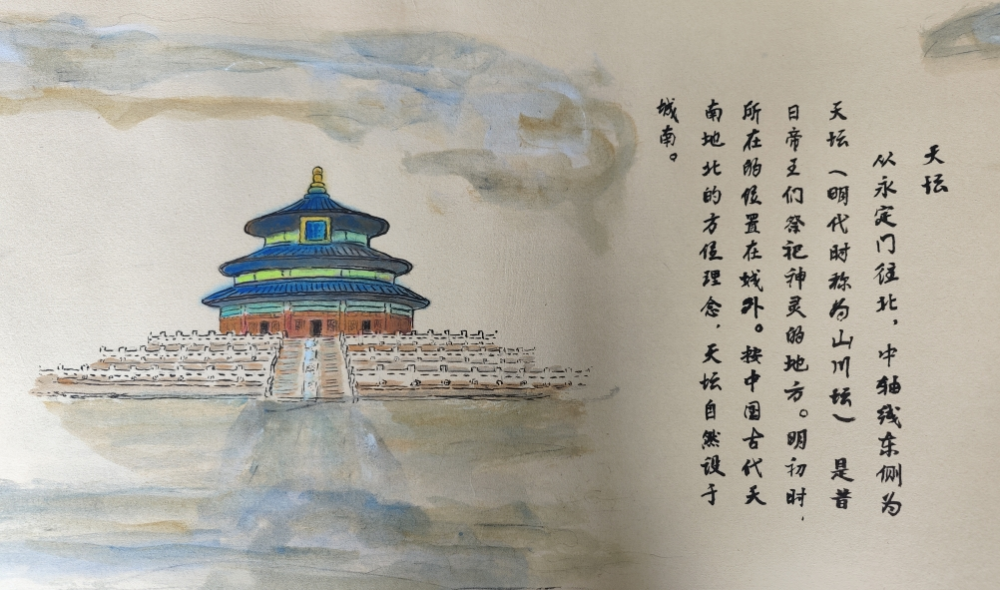 天坛
从永定门往北，中轴线东侧为
天坛（明代时称为山川坛）是昔
日帝王们祭祀神灵的地方。明初时，
所在的位置在城外。按中国古代天
南地北的方位理念，天坛自然设于
城南。